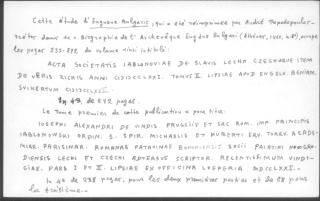 Cette étude d'Eugenios Bulgaris, qui a été réimprimée par André Papadopoulos-
dans sa « Biographie de l'Archevêque Eugène Bulgari (Athènes,
les pages du volume ainsi intitulé :
ACTA SOCIETATIS IABLONOVIAE DE SLAVIS LECHO CZECHOQUE ITEM
DE VERIS ZICHIS ANNI CIƆIƆCCLXXI. TOMUS II. LIPSIAE APUD
In 4º, de 272 pages.
Le Tome premier de cette publication a pour titre :
IOSEPHI ALEXANDRI DE PRUSSII ET SAC. ROM. IMP. PRINCIPIS
IABLONOWSKI ORDIN. S. SPIR. MICHAELIS ET HUBERTI EQU. ACADE-
MIAE. PARISINAR. ROMANAE PATAVINAE BONONIENSIS SOCII
LECHI ET CZECHI ADVERSUS SCRIPTOR. RECENTISSIMUM VINDI-
CIAE. PARS I ET II. LIPSIAE EX OFFICINA LOEPERIA MDCCLXXI.
In 4º de 238 pages, pour les deux premières parties et de 28 pour
la troisième.